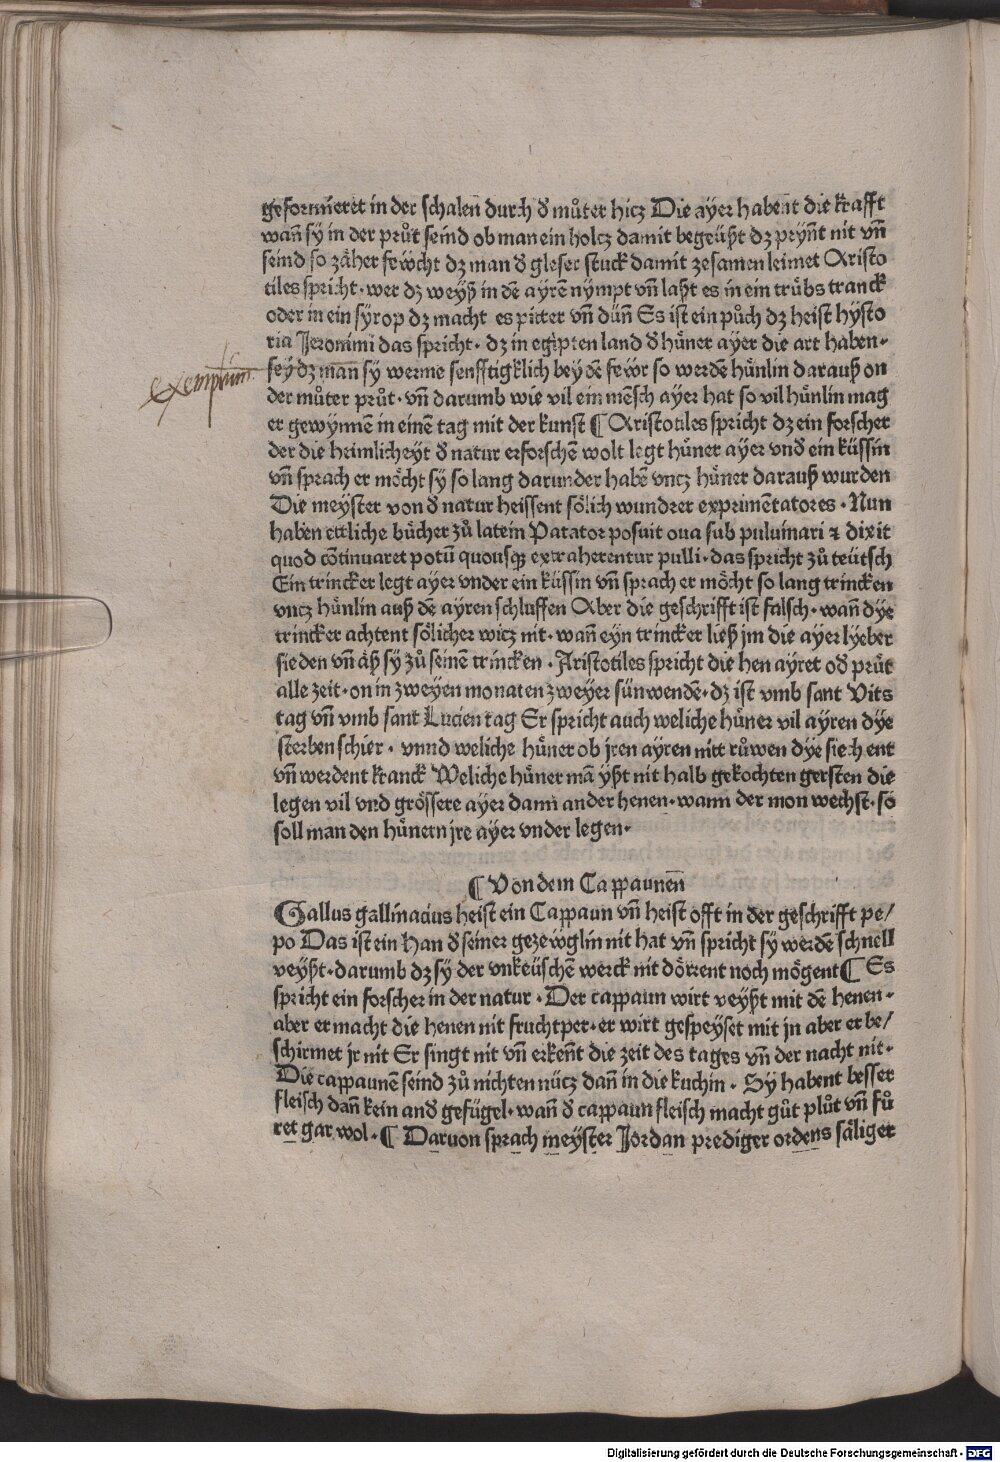 geformeret in der schalen durch d̕ můter hicz Die ayer habent die krafft
wañ sy in der průt seind ob man ein holcz damit begeüßt dz prynt nit vñ
seind so zäher fewcht dz man d̕ gleser stuck damit zesamen leimet Aristo
tiles spricht· wer dz weyß in dē ayrē nympt vñ laßt es in ein trübs tranck
oder in ein syrop dz macht es pitter vñ dün̄ Es ist ein půch dz heist hysto
ria Jeronimi das spricht· dz in egipten land d̕ hüner ayer die art haben·
exemplum
sey dz man sy werme senfftigklich bey dē fewr so werdē hünlin darauß on
der můter průt· vñ darumb wie vil ein mēsch ayer hat so vil hünlin mag
er gewynnē in einē tag mit der kunst ¶ Aristotiles spricht dz ein forscher
der die heimlicheyt d̕ natur erforschē wolt legt hüner ayer vnd ein küssin
vñ sprach er möcht sy so lang darunder habē vncz hüner darauß wurden
Die meyster von d̕ natur heissent sölich wundrer exprimētatores· Nun
haben ettliche bücher zů latein Patator posuit oua sub puluinari ⁊ dixit
quod cōtinuaret potū quousqꝫ extraherentur pulli· das spricht zů teütsch
Ein trincker legt ayer vnder ein küssin vñ sprach er möcht so lang trincken
vncz hünlin auß dē ayren schluffen Aber die geschrifft ist falsch· wañ dye
trincker achtent sölicher wicz nit· wañ eyn trincker ließ jm die ayer lyeber
sieden vñ äß sy zů seinē trincken· Aristotiles spricht die hen ayret od̕ průt
alle zeit· on in zweyen monaten zweyer sünwendē· dz ist vmb sant Vits
tag vñ vmb sant Lucien tag Er spricht auch weliche hüner vil ayren dye
sterben schier· vnnd weliche hüner ob jren ayren nitt růwen dye siechent
vñ werdent kranck Weliche hüner mā yßt nit halb gekochten gersten die
legen vil vnd grössere ayer dann ander henen· wann der mon wechst· so
soll man den hünern jre ayer vnder legen·
¶ Von dem Cappaunen̄
Gallus gallinacius heist ein Cappaun vñ heist offt in der geschrifft pe/
po Das ist ein Han d̕ seiner gezewglin nit hat vñ spricht sy werdē schnell
veyßt· darumb dz sy der vnkeüschē werck nit dörrent noch mögent ¶ Es
spricht ein forscher in der natur· Der cappaun wirt veyßt mit dē henen·
aber er macht die henen nit fruchtper· er wirt gespeyset mit jn aber er be/
schirmet jr nit Er singt nit vñ erkeñt die zeit des tages vñ der nacht nit·
Die cappaunē seind zů nichten nücz dañ in die kuchin· Sy habent besser
fleisch dañ kein and̕ gefügel· wañ d̕ cappaun fleisch macht gůt plůt vñ fů
ret gar wol· ¶ Daruon sprach meyster Jordan prediger ordens säliger
Digitalisierung gefördert durch die Deutsche Forschungsgemeinschaft - DFG